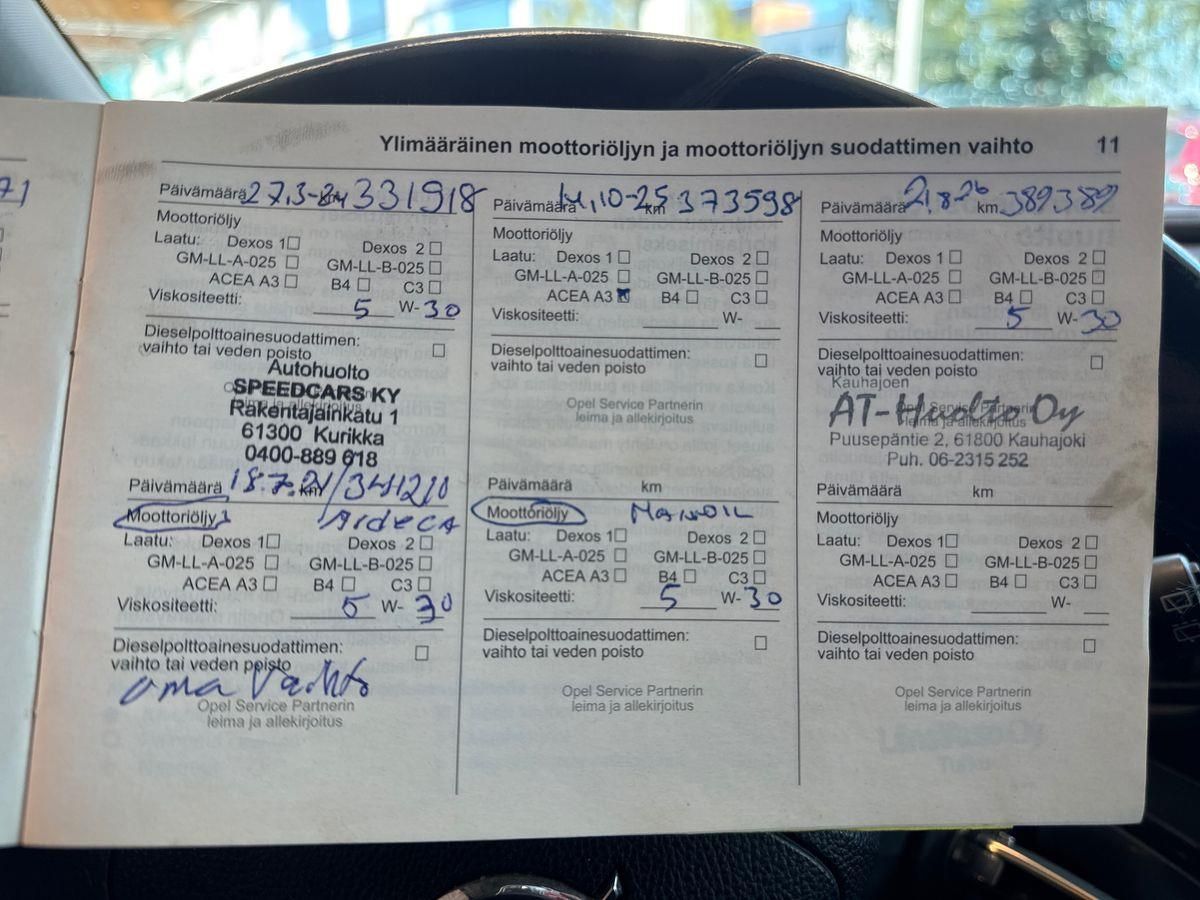 71
Ylimääräinen moottoriöljyn ja moottoriöljyn suodattimen vaihto 11
Päivämäärä 27.3-24 km 331918
Moottoriöljy
Laatu: Dexos 1 Dexos 2
GM-LL-A-025 GM-LL-B-025
ACEA A3 B4 C3
Viskositeetti: 5 W- 30
Dieselpolttoainesuodattimen:
vaihto tai veden poisto
Autohuolto
SPEEDCARS KY
Rakentajainkatu 1
61300 Kurikka
0400-889 618
Päivämäärä 18.7. km 341210
Moottoriöljy Ardeca
Laatu: Dexos 1 Dexos 2
GM-LL-A-025 GM-LL-B-025
ACEA A3 B4 C3
Viskositeetti: 5 W- 30
Dieselpolttoainesuodattimen:
vaihto tai veden poisto
oma vaihto
Opel Service Partnerin
leima ja allekirjoitus
Päivämäärä 14.10-25 km 373598
Moottoriöljy
Laatu: Dexos 1 Dexos 2
GM-LL-A-025 GM-LL-B-025
ACEA A3 B4 C3
Viskositeetti: W-
Dieselpolttoainesuodattimen:
vaihto tai veden poisto
Opel Service Partnerin
leima ja allekirjoitus
Päivämäärä km
Moottoriöljy MANNOIL
Laatu: Dexos 1 Dexos 2
GM-LL-A-025 GM-LL-B-025
ACEA A3 B4 C3
Viskositeetti: 5 W- 30
Dieselpolttoainesuodattimen:
vaihto tai veden poisto
Opel Service Partnerin
leima ja allekirjoitus
Päivämäärä 21.8.26 km 389389
Moottoriöljy
Laatu: Dexos 1 Dexos 2
GM-LL-A-025 GM-LL-B-025
ACEA A3 B4 C3
Viskositeetti: 5 W- 30
Dieselpolttoainesuodattimen:
vaihto tai veden poisto
Kauhajoen
AT-Huolto Oy
Opel Service Partnerin
leima ja allekirjoitus
Puusepäntie 2, 61800 Kauhajoki
Puh. 06-2315 252
Päivämäärä km
Moottoriöljy
Laatu: Dexos 1 Dexos 2
GM-LL-A-025 GM-LL-B-025
ACEA A3 B4 C3
Viskositeetti: W-
Dieselpolttoainesuodattimen:
vaihto tai veden poisto
Opel Service Partnerin
leima ja allekirjoitus